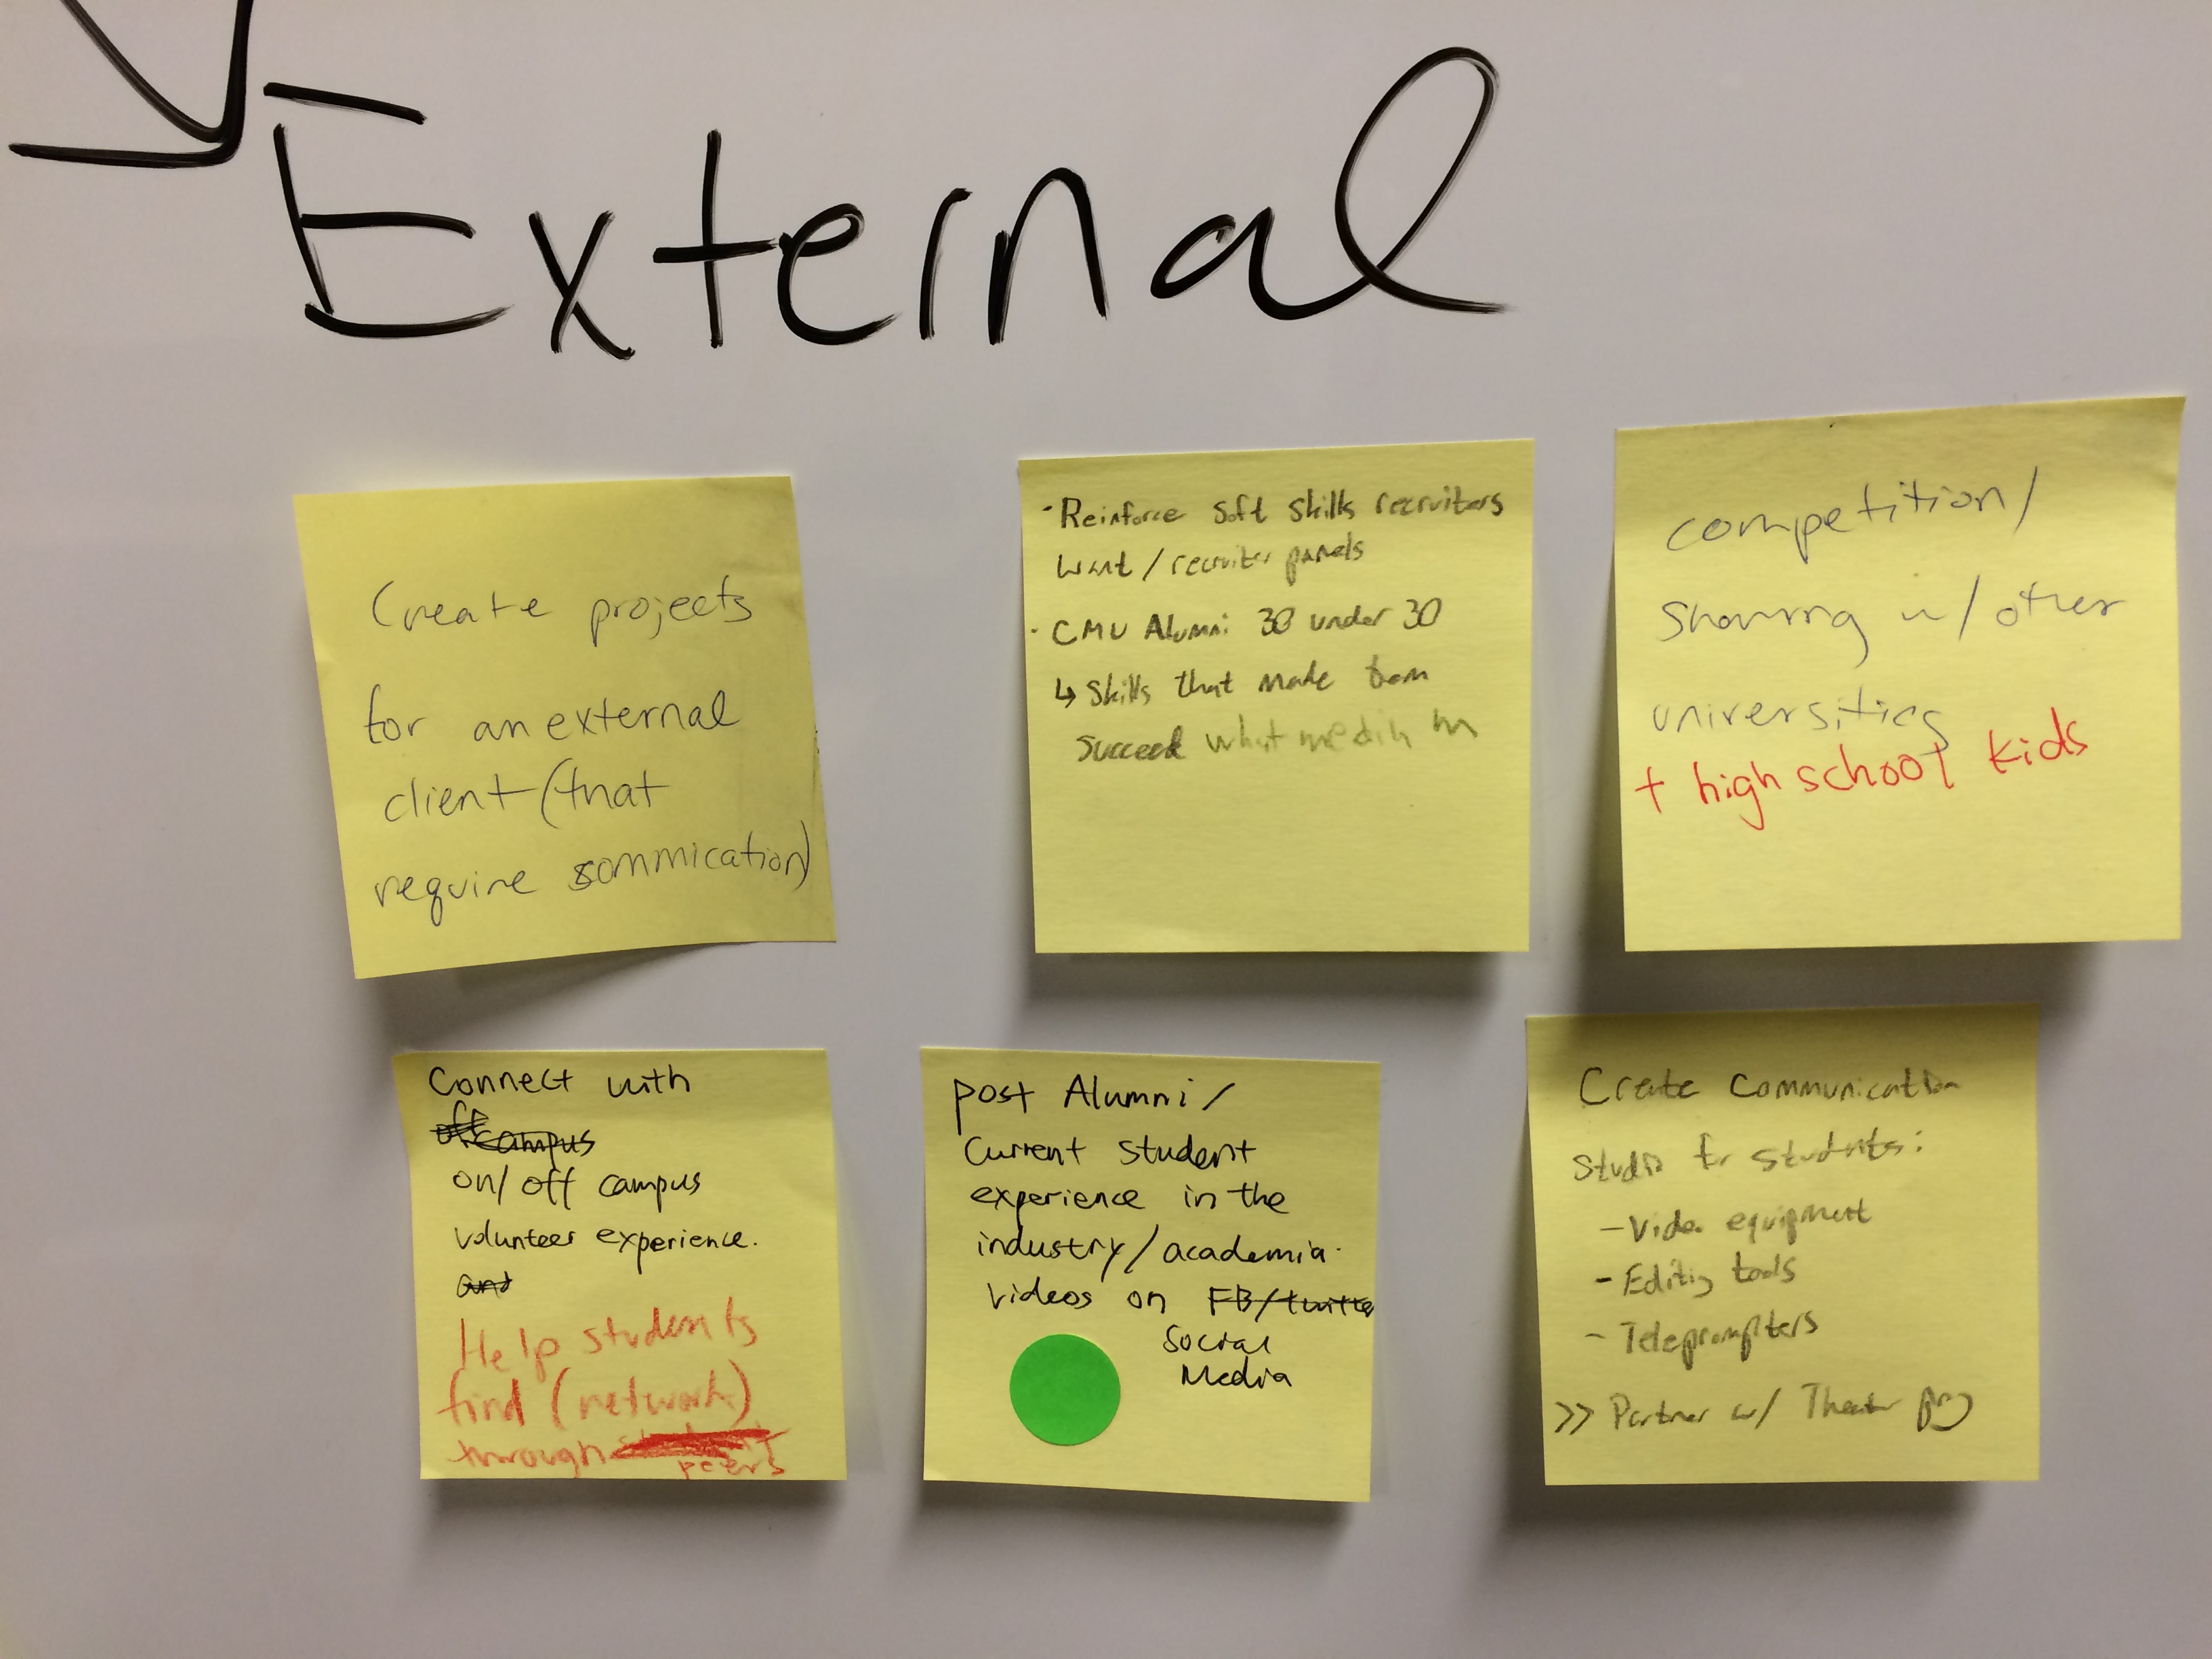 External
Create projects
for an external
client (that
require sommication)
· Reinforce soft skills recruiters
want / recruiter panels
· CMU Alumni 30 under 30
↳ skills that made them
succeed what
competition/
sharing w/ other
universities
+ high school kids
Connect with
off campus
on/ off campus
volunteer experience.
and
Help students
find (network)
through peers
post Alumni /
Current student
experience in the
industry/academia.
videos on FB/twitte
Social
Media
Create Communication
Studio for students:
- Video equipment
- Editing tools
- Teleprompters
>> Partner w/ Theater